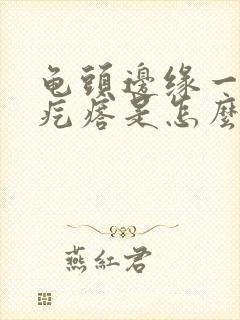 龟頭邊缘一
疙瘩是怎麼
燕紅君